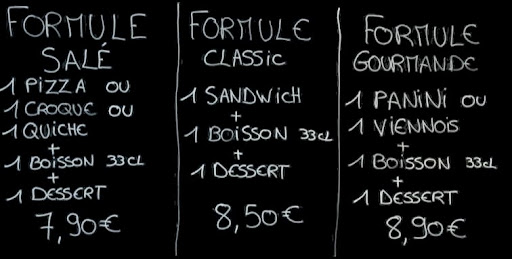 FORMULE
SALÉ
1 PIZZA OU
1 CROQUE OU
1 QUICHE
+
1 BOISSON 33CL
+
1 DESSERT
7,90€
FORMULE
CLASSIC
1 SANDWICH
+
1 BOISSON 33CL
+
1 DESSERT
8,50€
FORMULE
GOURMANDE
1 PANINI OU
1 VIENNOIS
+
1 BOISSON 33CL
+
1 DESSERT
8,90€